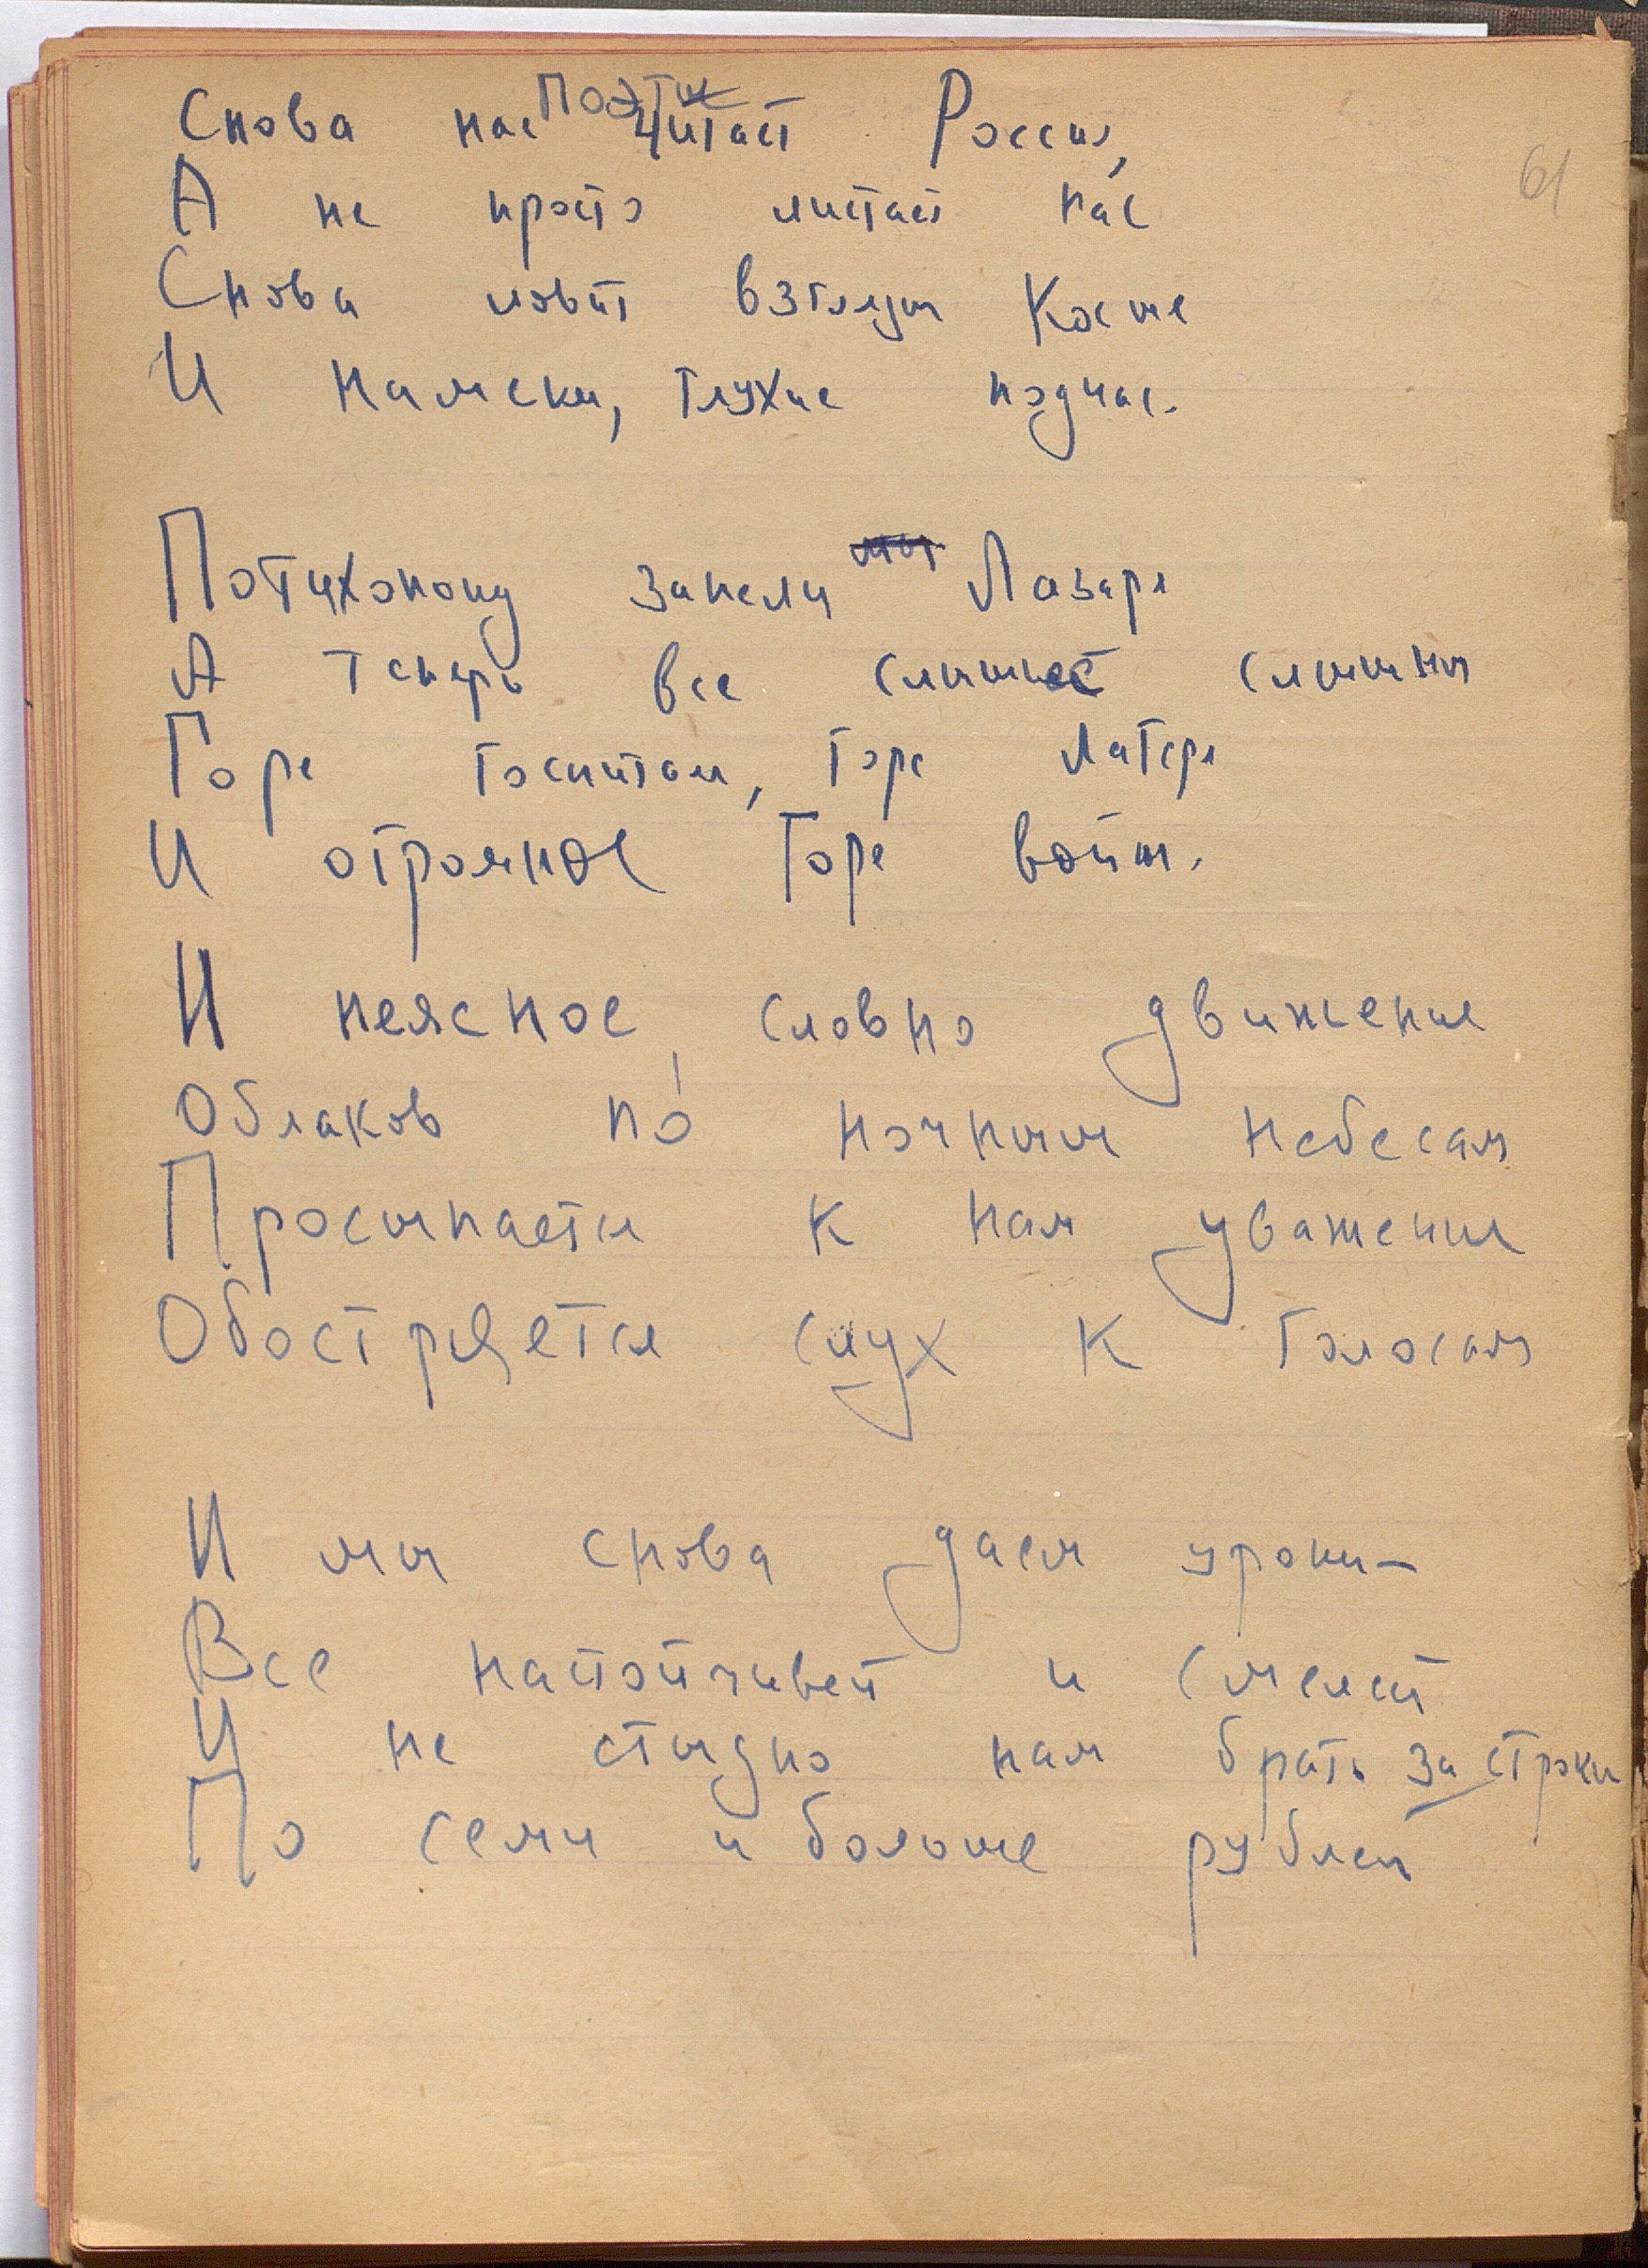 Поэтих
Снова нас читает Россия,
А не просто листает нас
Снова ловит взгляды косые
И намеки, глухие подчас.
Потихоньку запели мы Лазаря
А теперь все слышнее слышны
Горе госпиталя, горе лагеря
И огромное Горе войны.
И неясное, словно движение
Облаков по́ ночным небесам
Просыпается к нам уважение
Обостряется слух к голосам
И мы снова даем уроки —
Все настойчивей и смелей
И не стыдно нам брать за строки
По семи и больше рублей
61